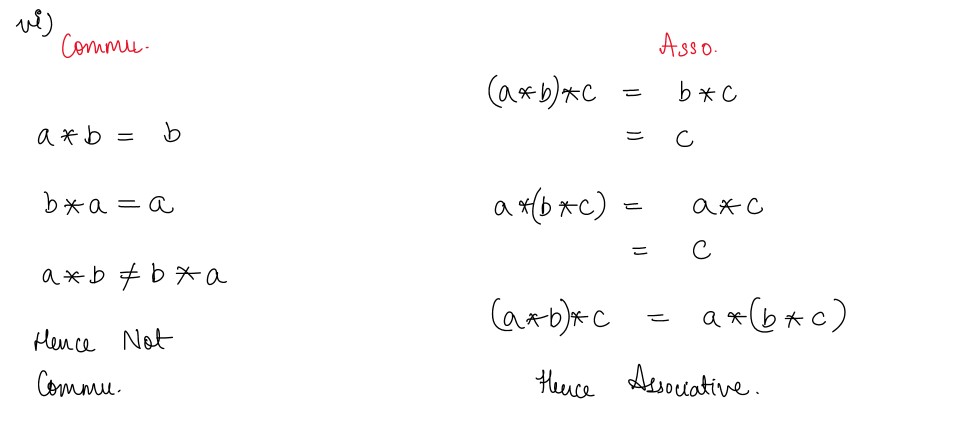 vi)
Commu.
a * b = b
b * a = a
a * b ≠ b * a
Hence Not
Commu.
Asso.
(a * b) * c = b * c
= c
a * (b * c) = a * c
= c
(a * b) * c = a * (b * c)
Hence Associative.